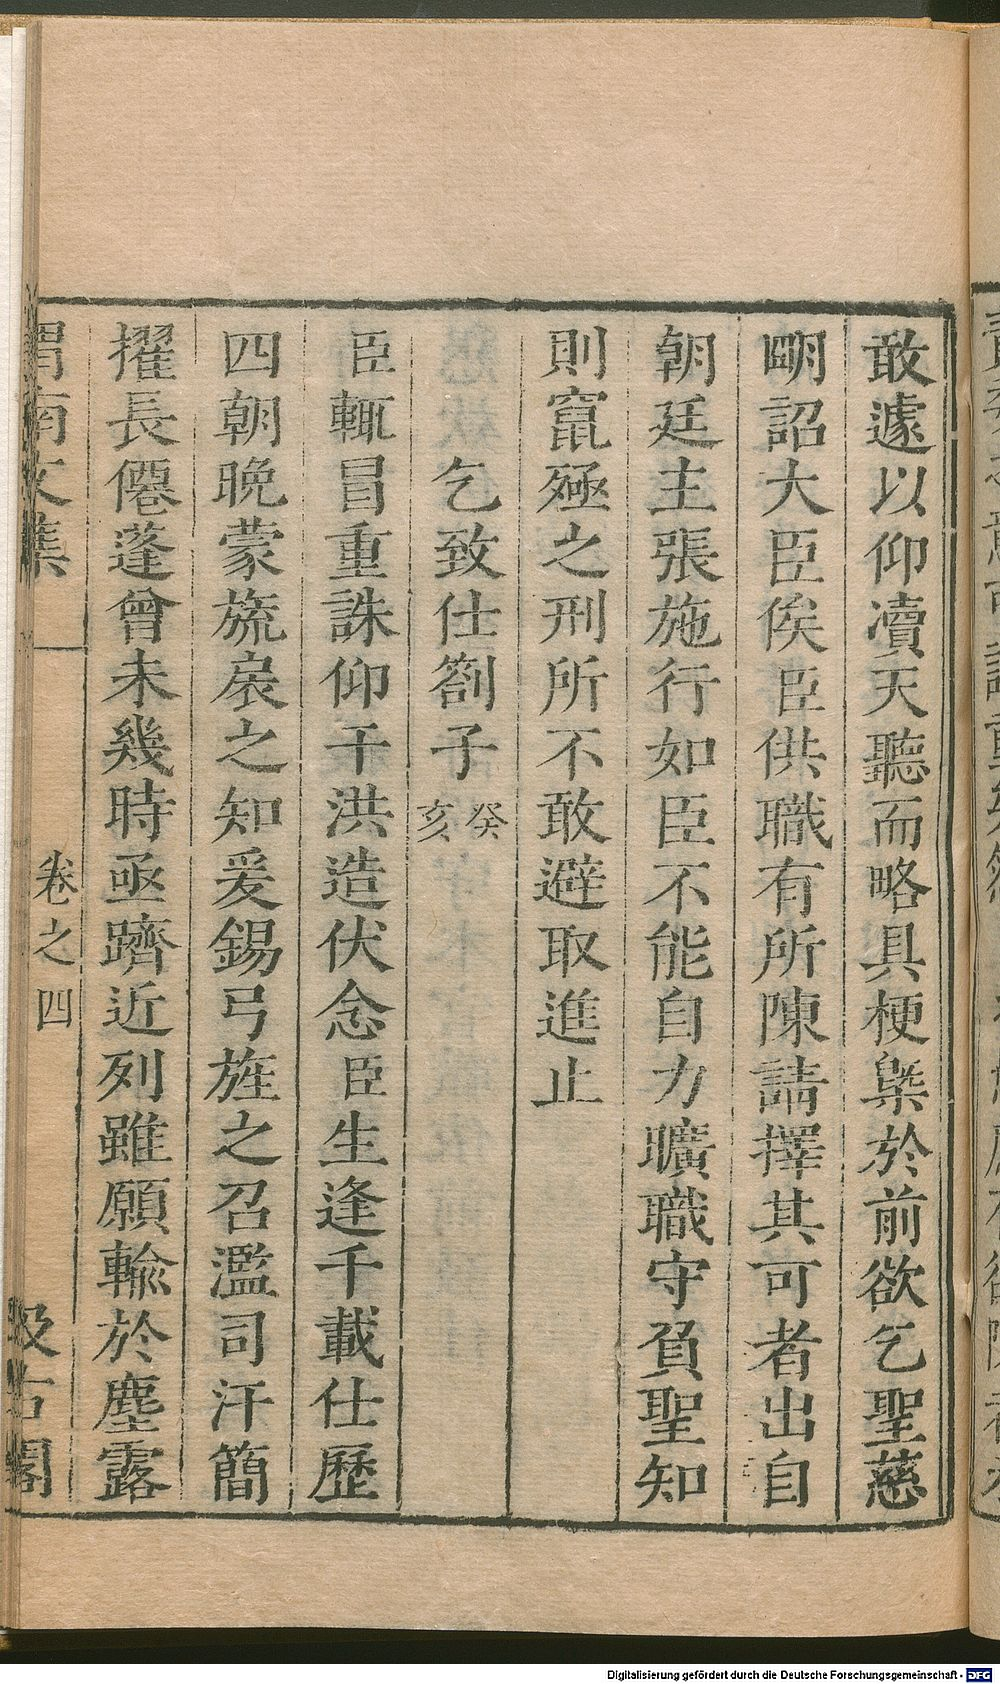 敢遽以仰凟天聽而略具梗槩於前欲乞聖慈
朙詔大臣俟臣供職有所陳請擇其可者出自
朝廷主張施行如臣不能自力曠職守負聖知
則竄殛之刑所不敢避取進止
乞致仕劄子癸亥
臣輒冒重誅仰干洪造伏念臣生逢千載仕歷
四朝晚蒙旒扆之知爰錫弓旌之召濫司汗簡
擢長僊蓬曾未幾時亟躋近列雖願輸於塵露
渭南文集 卷之四 汲古閣
Digitalisierung gefördert durch die Deutsche Forschungsgemeinschaft - DFG